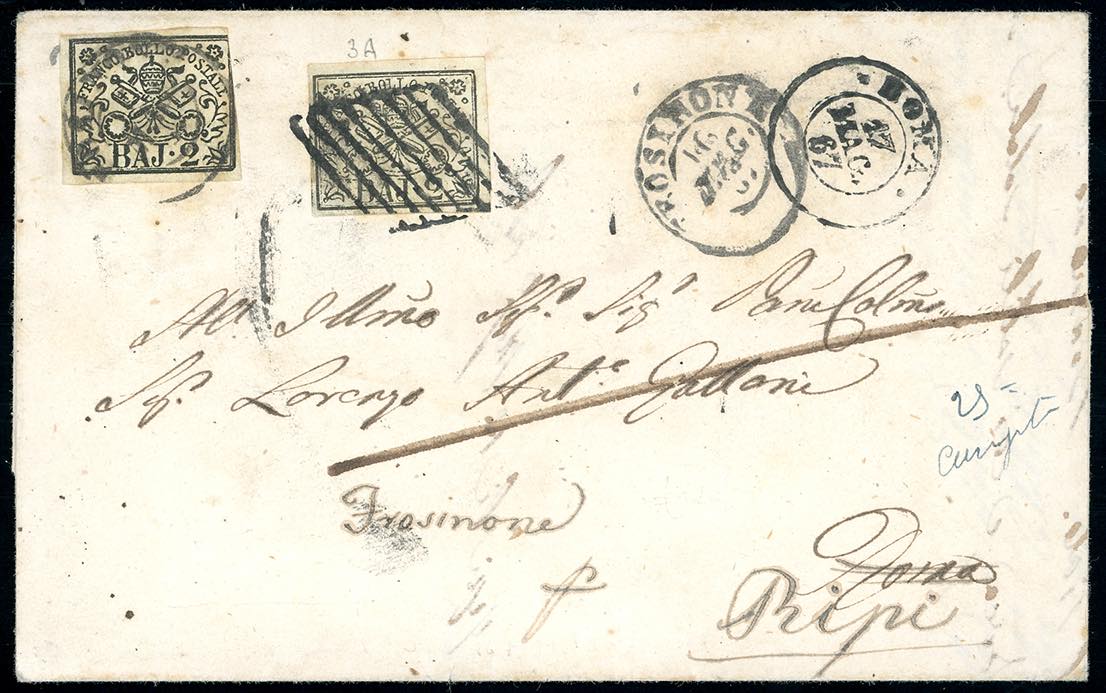 FRANCO BOLLO POSTALE
BAJ·2
3A
BOLLO
BAJ·2
FROSINONE
16
MAG.
ROMA
17
MAG.
67
All' Illmo Sig. Sig.
Sig. Lorenzo Ant.
Frosinone
Roma
Ripi